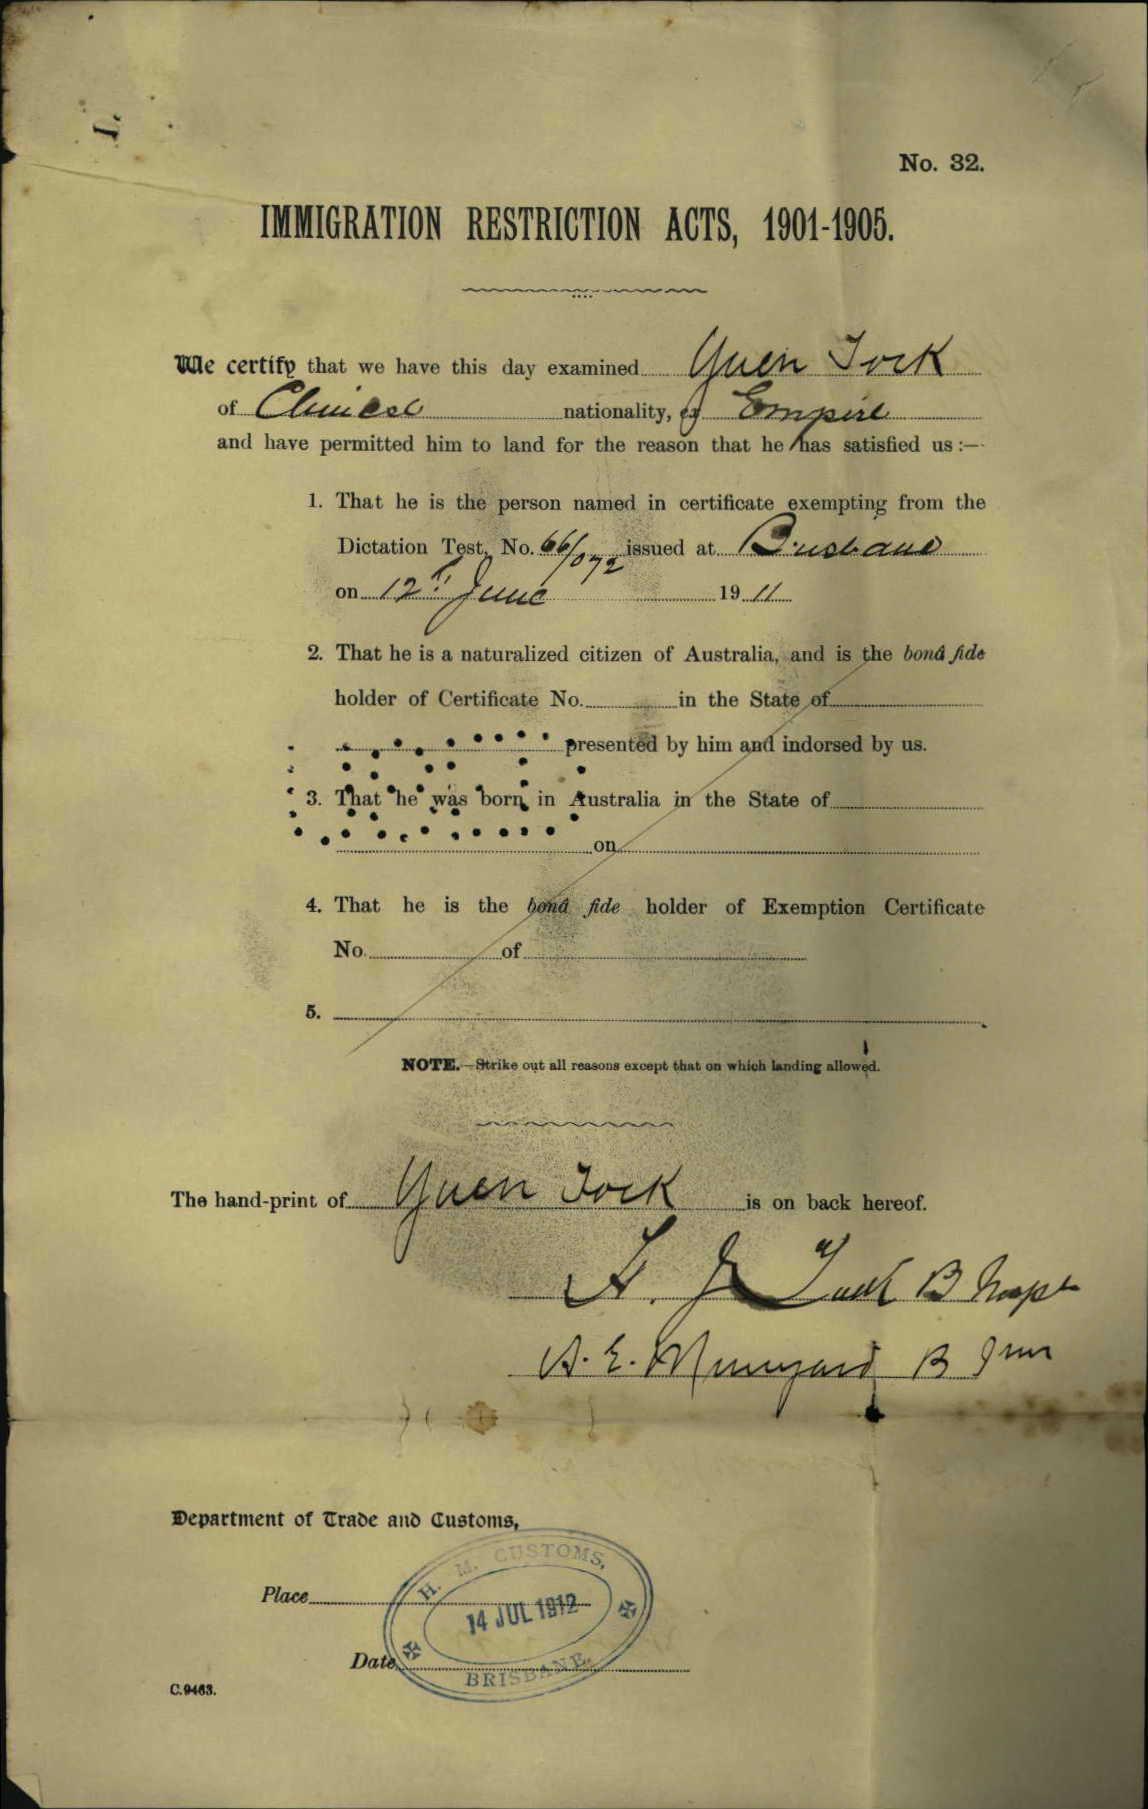 1.
No. 32.
IMMIGRATION RESTRICTION ACTS, 1901-1905.
We certify that we have this day examined Yuen Tock
of Chinese nationality, ex Empire
and have permitted him to land for the reason that he has satisfied us :—
1. That he is the person named in certificate exempting from the
Dictation Test, No. 66/072 issued at Brisbane
on 12th June 1911
2. That he is a naturalized citizen of Australia, and is the bonâ fide
holder of Certificate No. in the State of
presented by him and indorsed by us.
3. That he was born in Australia in the State of
on
4. That he is the bonâ fide holder of Exemption Certificate
No. of
5.
NOTE.—Strike out all reasons except that on which landing allowed.
The hand-print of Yuen Tock is on back hereof.
B
A. E. B
Department of Trade and Customs,
H. M. CUSTOMS,
Place
14 JUL 1912
Date
BRISBANE.
C.9463.